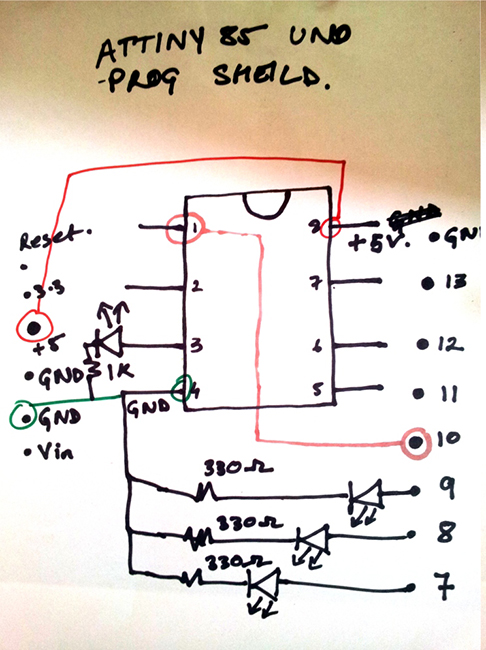 ATTINY 85 UNO
-PROG SHEILD.
Reset.
.3.3
+5
GND
GND
Vin
1K
1
2
3
4
GND
8
7
6
5
+5V.
GN
13
12
11
10
9
8
7
330Ω
330Ω
330Ω